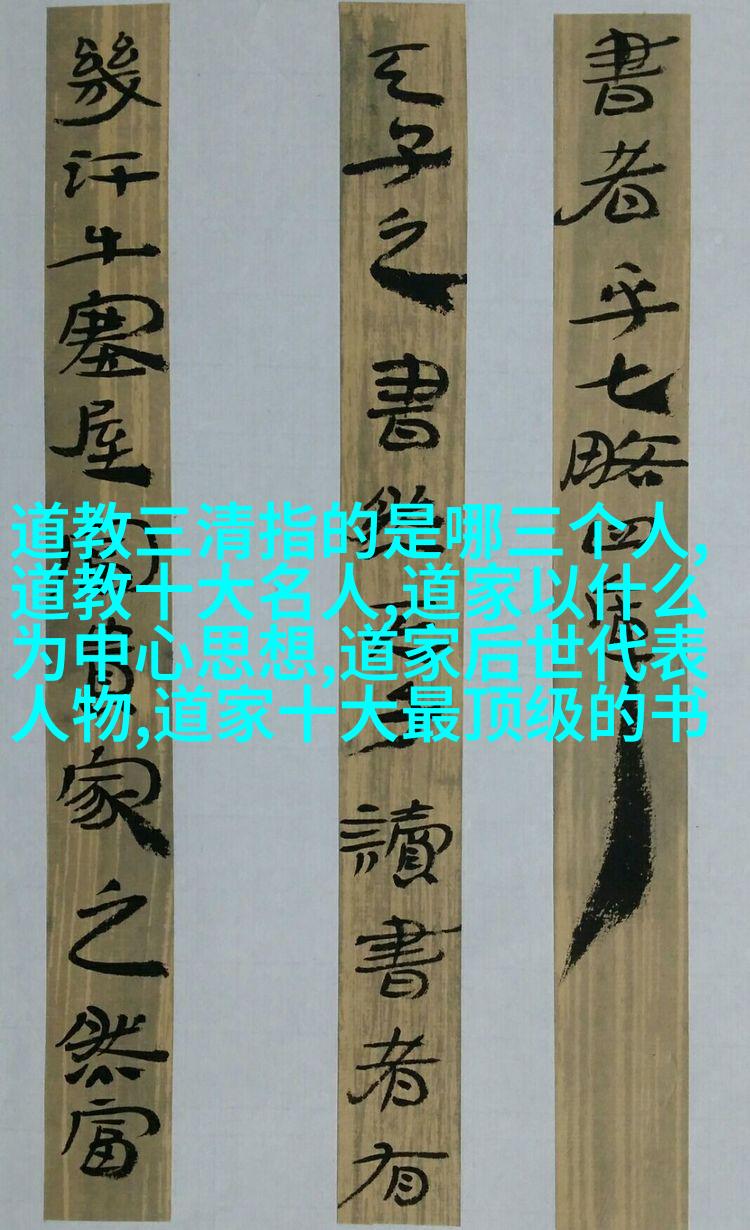 書者乎七略四
天子之書然子讀書者有
幾汗牛塞屋家之然富
道教三清指的是哪三个人,
道教十大名人,道家以什么
为中心思想,道家后世代表
人物,道家十大最顶级的书